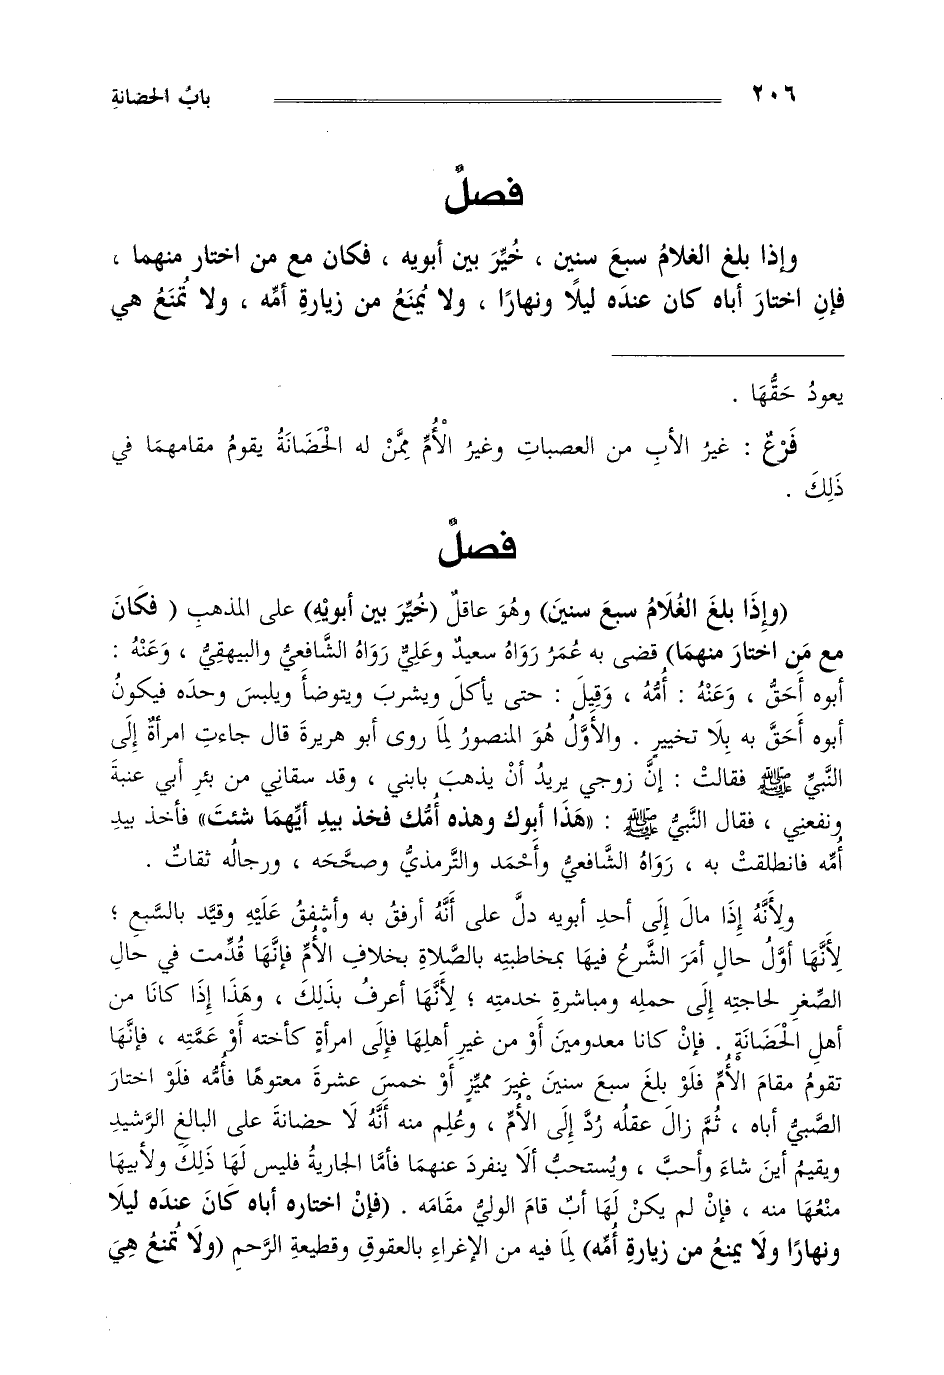 ٢٠٦ بابُ الحضانةِ
فصلٌ
وإذا بلغ الغلامُ سبعَ سنين ، خُيِّرَ بين أبويه ، فكان مع من اختار منهما ،
فإنِ اختارَ أباه كان عندَه ليلًا ونهارًا ، ولا يُمنَعُ من زيارةِ أمِّه ، ولا تُمنَعُ هي
يعودُ حَقُّهَا .
فَرْعٌ : غيرُ الأبِ من العصباتِ وغيرُ الْأُمِّ مِمَّنْ له الْحَضَانَةُ يقومُ مقامهمَا في
ذَلِكَ .
فصلٌ
(وإِذَا بلغَ الغُلَامُ سبعَ سنينَ) وهُوَ عاقلٌ (خُيِّرَ بين أبويْهِ) على المذهبِ ( فكَانَ
مع مَن اختارَ منهمَا) قضى به عُمَرُ رَوَاهُ سعيدٌ وعَلِيٌّ رَوَاهُ الشَّافعيُّ والبيهقِيُّ ، وَعَنْهُ :
أبوه أَحَقُّ ، وَعَنْهُ : أمُّهُ ، وَقِيلَ : حتى يأكلَ ويشربَ ويتوضأَ ويلبسَ وحدَه فيكونُ
أبوه أحَقَّ به بِلَا تخييرٍ . والأوَّلُ هُوَ المنصورُ لمَا روى أبو هريرةَ قال جاءتِ امرأةٌ إِلَى
النَّبِيِّ ﷺ فقالتْ : إنَّ زوجي يريدُ أنْ يذهبَ بابني ، وقد سقاني من بئرِ أبي عنبةَ
ونفعنِي ، فقال النَّبِيُّ ﷺ : «هَذَا أبوك وهذه أمُّك فخذ بيدِ أيِّهمَا شئتَ» فأخذ بيدِ
أُمِّه فانطلقتْ به ، رَوَاهُ الشَّافعيُّ وأحْمَد والتِّرمذيُّ وصحَّحَه ، ورجالُه ثقاتٌ .
ولِأَنَّهُ إِذَا مالَ إِلَى أحدِ أبويه دلَّ على أنَّهُ أرفقُ به وأشْفقُ عَلَيْهِ وقيَّد بالسَّبعِ ؛
لِأَنَّهَا أوَّلُ حالٍ أمَرَ الشَّرعُ فيهَا بمخاطبتِه بالصَّلاةِ بخلافِ الأُمِّ فإنَّهَا قُدِّمت في حالِ
الصِّغرِ لحاجتِه إِلَى حملِه ومباشرةِ خدمتِه ؛ لِأَنَّهَا أعرفُ بذَلِكَ ، وهَذَا إِذَا كانَا من
أهلِ الْحَضَانَةِ . فإنْ كانا معدومينَ أوْ من غيرِ أهلِهَا فإلَى امرأةٍ كأختِه أوْ عَمَّتِه ، فإنَّهَا
تقومُ مقامَ الأُمِّ فلَوْ بلغَ سبعَ سنينَ غيرَ مميِّزٍ أوْ خمسَ عشرةَ معتوهًا فأمُّه فلَوْ اختارَ
الصَّبِيُّ أباه ، ثُمَّ زالَ عقلُه رُدَّ إِلَى الأُمِّ ، وعُلِم منه أنَّهُ لَا حضانةَ على البالغِ الرَّشيدِ
ويقيمُ أينَ شاءَ وأحبَّ ، ويُستحبُّ ألا ينفردَ عنهمَا فأمَّا الجاريةُ فليس لَهَا ذَلِكَ ولأبيهَا
منْعُهَا منه ، فإنْ لم يكنْ لَهَا أبٌ قامَ الوليُّ مقَامَه . (فإنْ اختاره أباه كَانَ عندَه ليلًا
ونهارًا ولَا يمنعُ من زيارةِ أمِّه) لمَا فيه من الإغراءِ بالعقوقِ وقطيعةِ الرَّحمِ (ولَا تُمنعُ هِيَ